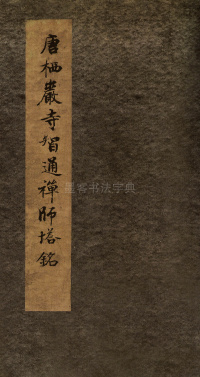 唐栖巖寺智通禪師塔銘
墨客书法字典